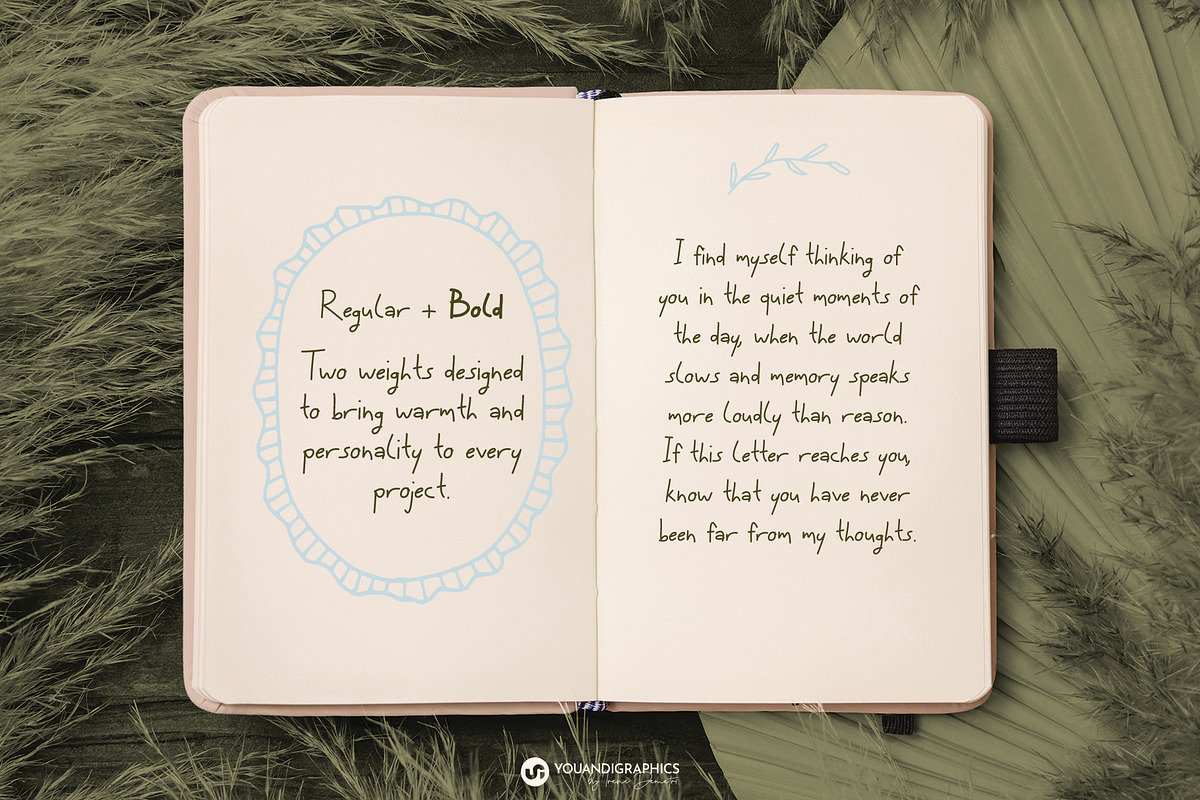 Regular + Bold
Two weights designed
to bring warmth and
personality to every
project.
I find myself thinking of
you in the quiet moments of
the day, when the world
slows and memory speaks
more loudly than reason.
If this letter reaches you,
know that you have never
been far from my thoughts.
YOUANDIGRAPHICS
by Irene Demetri